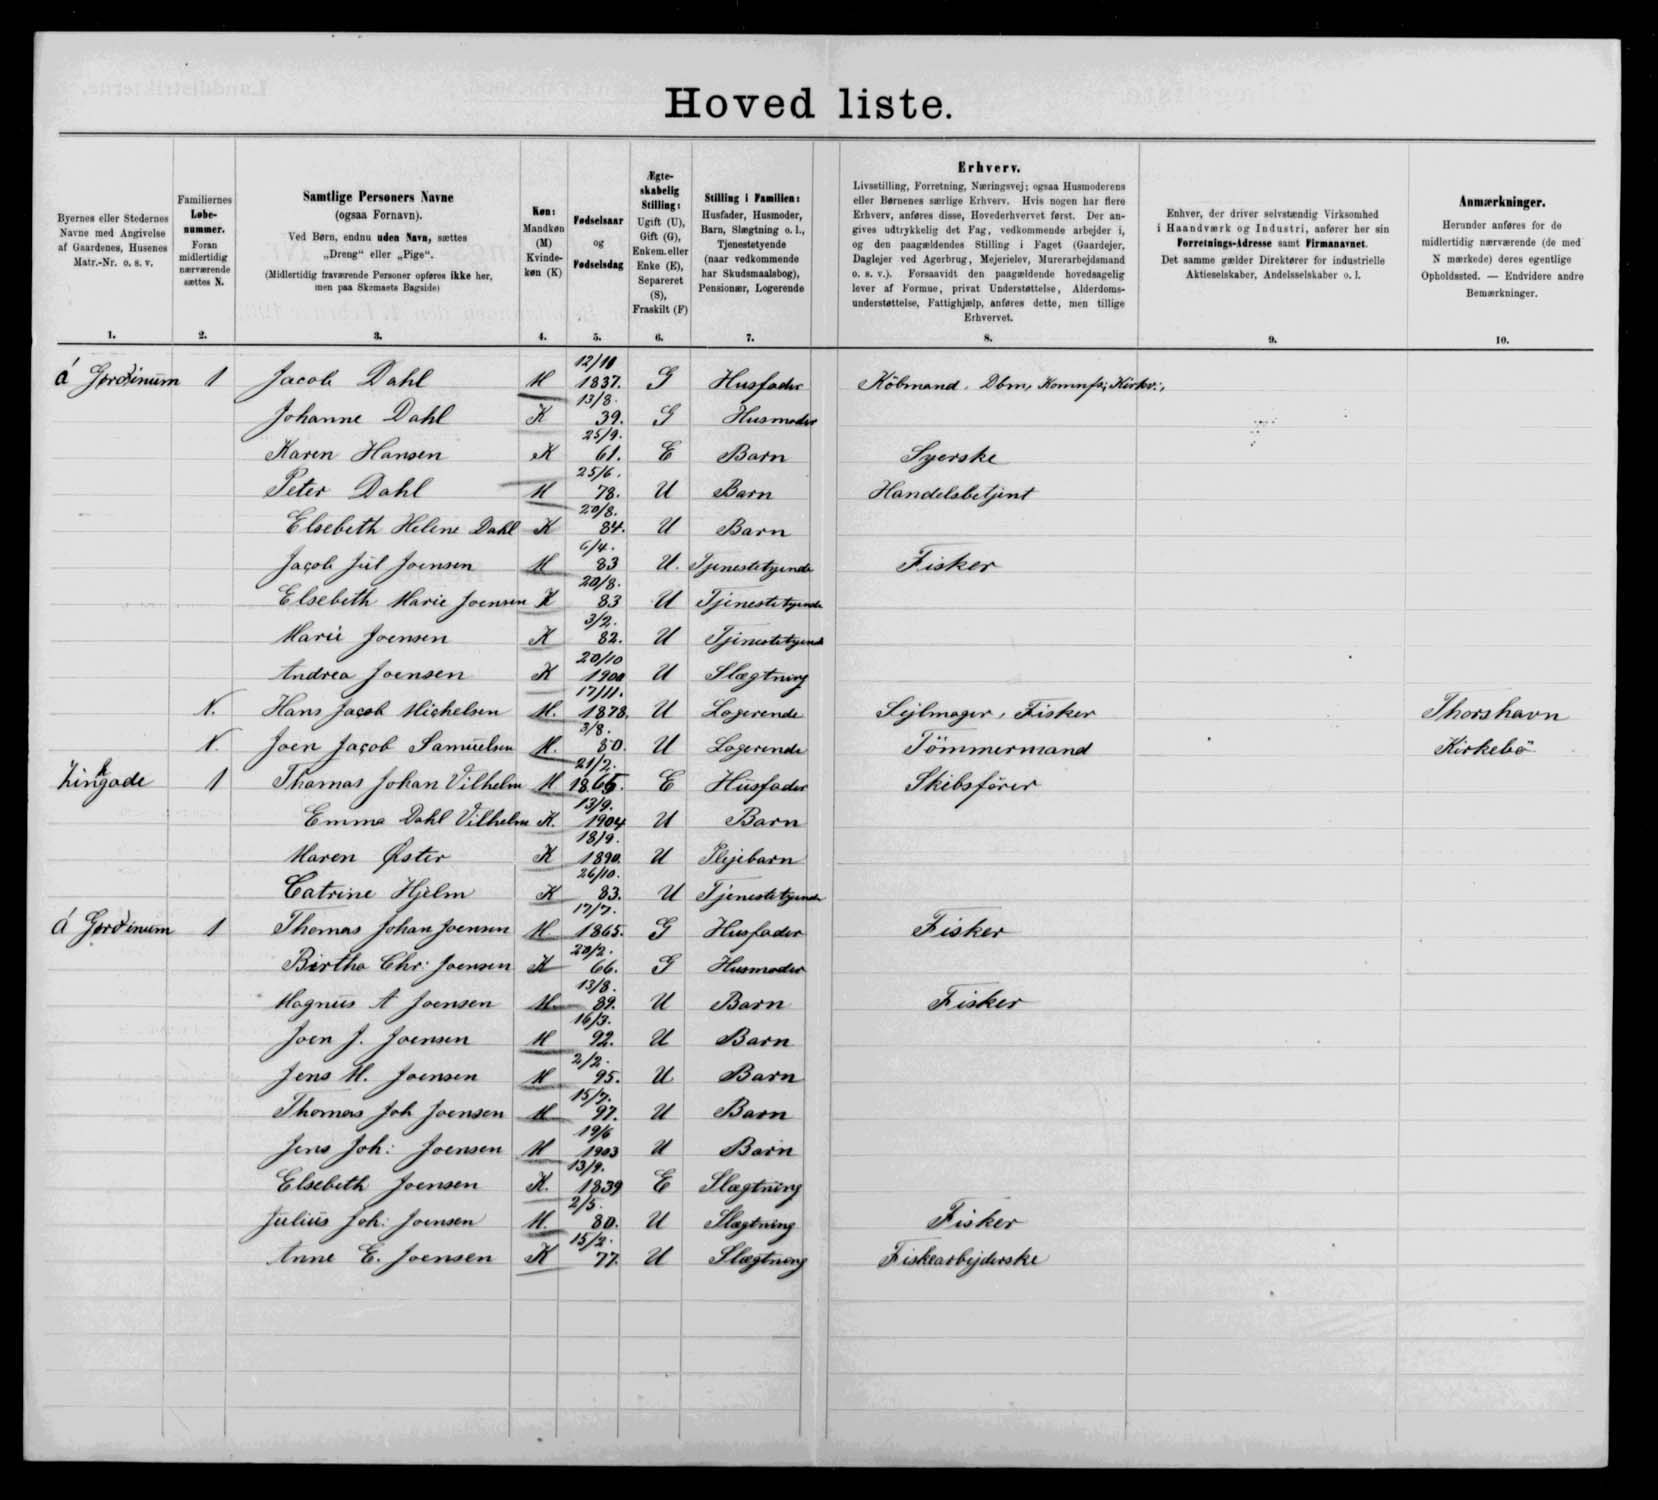 Hoved liste.
Byernes eller Stedernes Navne med Angivelse af Gaardenes, Husenes Matr.-Nr. o. s. v.
Familiernes Løbe-nummer. Foran midlertidig nærværende sættes N.
Samtlige Personers Navne
(ogsaa Fornavn).
Ved Børn, endnu uden Navn, sættes „Dreng“ eller „Pige“.
(Midlertidig fraværende Personer opføres ikke her, men paa Skemaets Bagside)
Køn: Mandkøn (M) Kvinde-køn (K)
Fødselsaar og Fødselsdag
Ægte-skabelig Stilling: Ugift (U), Gift (G), Enkem. eller Enke (E), Separeret (S), Fraskilt (F)
Stilling i Familien: Husfader, Husmoder, Barn, Slægtning o. l., Tjenestetyende (naar vedkommende har Skudsmaalsbog), Pensionær, Logerende
Erhverv.
Livsstilling, Forretning, Næringsvej; ogsaa Husmoderens eller Børnenes særlige Erhverv. Hvis nogen har flere Erhverv, anføres disse, Hovederhvervet først. Der an-gives udtrykkelig det Fag, vedkommende arbejder i, og den paagældendes Stilling i Faget (Gaardejer, Daglejer ved Agerbrug, Mejerielev, Murerarbejdsmand o. s. v.). Forsaavidt den paagældende hovedsagelig lever af Formue, privat Understøttelse, Alderdoms-understøttelse, Fattighjælp, anføres dette, men tillige Erhvervet.
Enhver, der driver selvstændig Virksomhed i Haandværk og Industri, anfører her sin Forretnings-Adresse samt Firmanavnet. Det samme gælder Direktører for industrielle Aktieselskaber, Andelsselskaber o. l.
Anmærkninger.
Herunder anføres for de midlertidig nærværende (de med N mærkede) deres egentlige Opholdssted. — Endvidere andre Bemærkninger.
1. 2. 3. 4. 5. 6. 7. 8. 9. 10.
á 1 Jacob Dahl M 12/10 1837. G Husfader Köbmand. Dbm,
Johanne Dahl K 13/8. 39. G Husmoder
Karen Hansen K 25/9. 61. E Barn Syerske
Peter Dahl M 25/6. 78. U Barn Handelsbetjent
Elsebeth Helene Dahl K 20/8. 84. U Barn
Jacob Jul Joensen M 6/4. 83 U. Tjenestetyende Fisker
Elsebeth Marie Joensen K 20/8. 83 U Tjenestetyende
Marie Joensen K 3/2. 82. U Tjenestetyende
Andrea Joensen K 20/10 1900 U Slægtning
N. Hans Jacob Michelsen M. 17/11. 1878. U Logerende Sejlmager, Fisker Thorshavn
N. Joen Jacob Samuelsen M. 3/8. 80. U Logerende Tömmermand Kirkebö
1 Thomas Johan Vilhelm M 21/2. 1865. E Husfader Skibsförer
Emma Dahl Vilhelm K. 13/9. 1904 U Barn
Maren Øster K 18/9. 1890. U Plejebarn
Catrine Hjelm K 26/10. 83. U Tjenestetyende
á 1 Thomas Johan Joensen M. 17/7. 1865. G Husfader Fisker
Birtha Chr: Joensen K 20/2. 66. G Husmoder
Magnus A Joensen M. 13/8. 89. U Barn Fisker
Joen J. Joensen M 16/3. 92. U Barn
Jens M. Joensen M 2/2. 95. U Barn
Thomas Joh Joensen M 15/7. 97. U Barn
Jens Joh: Joensen M 19/6 1903 U Barn
Elsebeth Joensen K. 13/9. 1839 E Slægtning
Julius Joh: Joensen M. 2/5. 80. U Slægtning Fisker
Anne E. Joensen K 15/2. 77. U Slægtning Fiskearbejderske